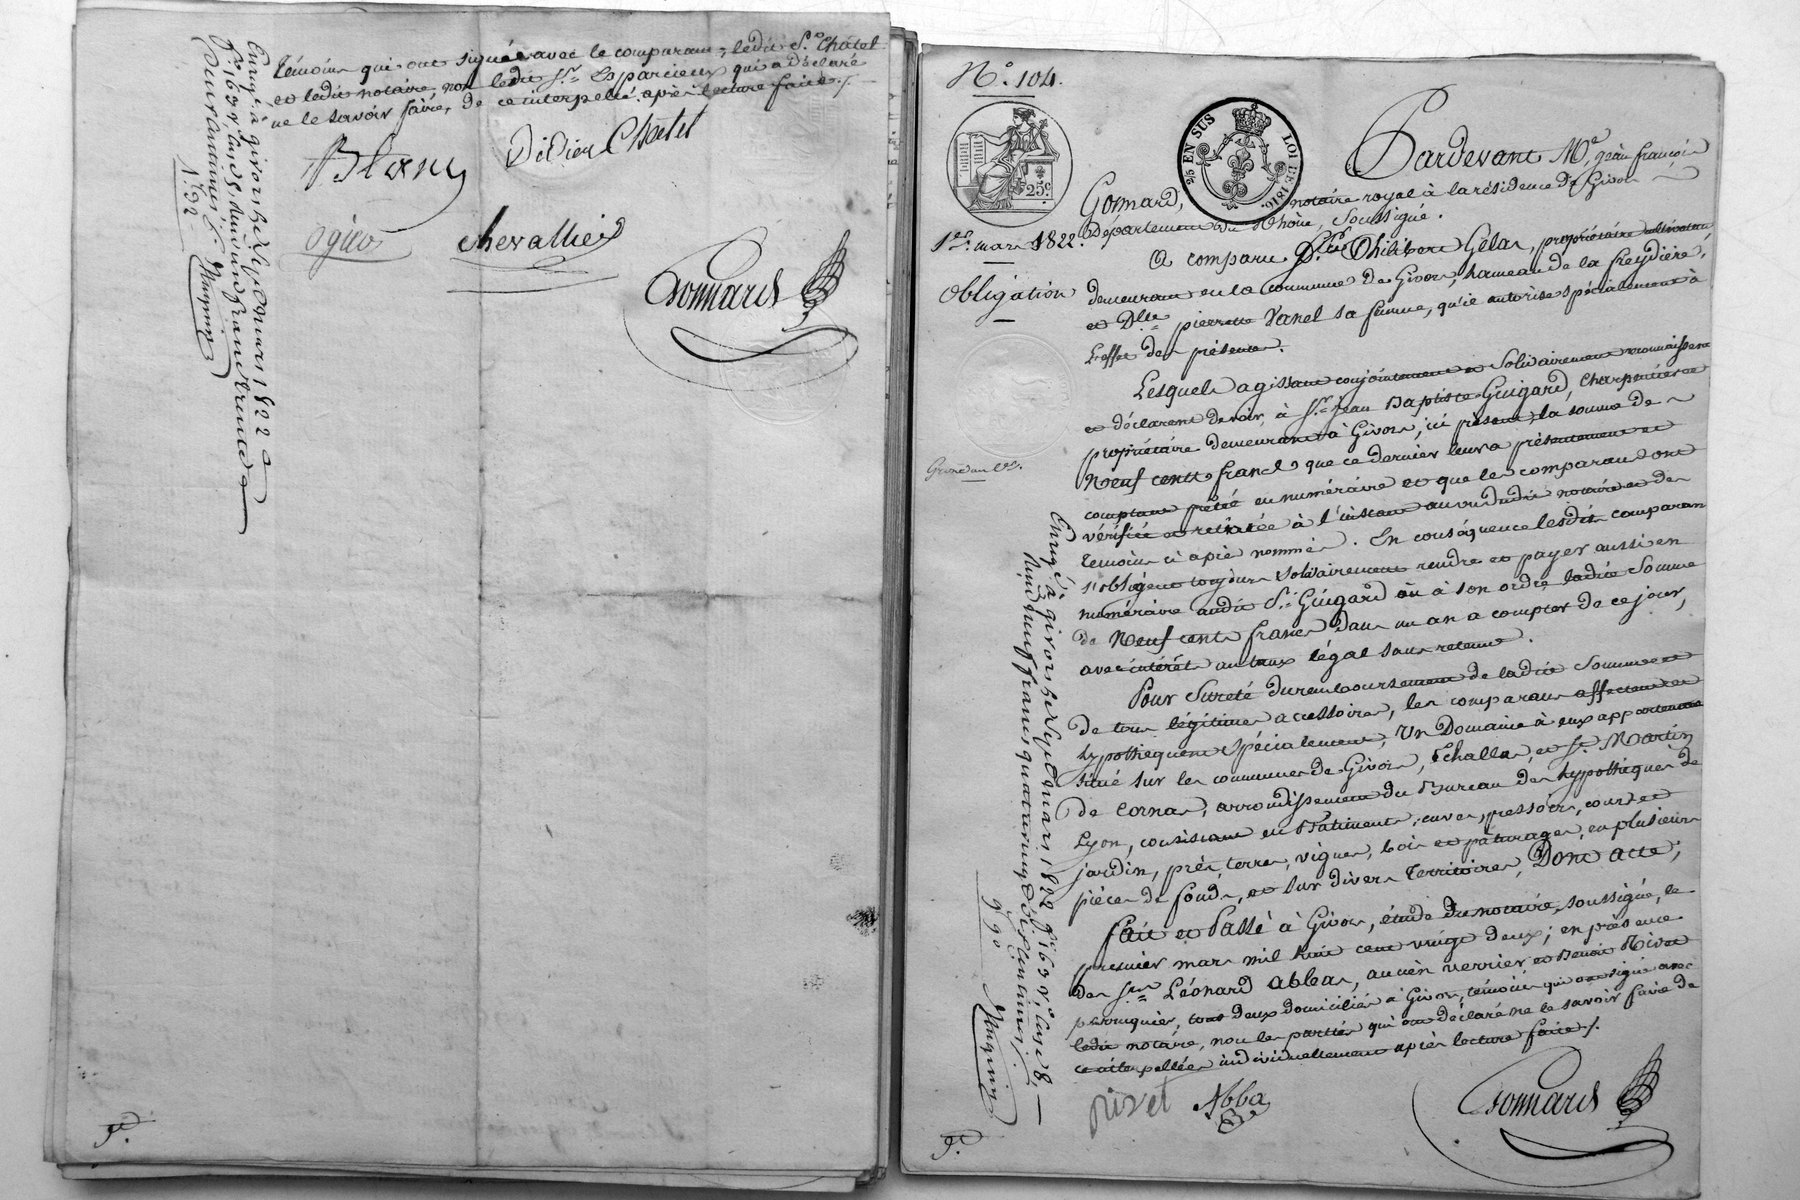 témoins qui ont signé avec le comparant, ledit S.r Châtel
et ledit notaire, non ledit S.r Esparcieux qui a déclaré
ne le savoir faire, de ce interpellé après lecture faite ./.
Blanc
Didier Chatel
ogier
chevallier
Gonnard
Enreg.é à givors le sept mars 1822
f.o 163 v.o case 5, reçu un franc trente
deux centimes
1.f 32
9.e
N.o 104.
25c
2/5 EN SUS
LOI DE 1816.
Pardevant M.e Jean françois
Gonnard, notaire royal à la résidence de Givors
Département du Rhône, Soussigné.
1.er mars 1822.
Obligation
A comparu S.r Philibert Gelas, propriétaire cultivateur
demeurant en la commune de Givors, hameau de la freydière,
et D.lle pierrette Vanel sa femme, qu'il autorise spécialement à
l'effet des présentes.
Lesquels agissant conjointement et solidairement reconnaissent
et déclarent devoir, à S.r Jean Baptiste Guigard, charpentier et
propriétaire demeurant à Givors, ici présent, la somme de
Neuf cents francs que ce dernier leur a présentement et
comptant prêté en numéraire et que les comparants ont
vérifiée et retirée à l'instant au vu dudit notaire et des
témoins ci après nommés. En conséquence lesdits comparants
s'obligent toujours solidairement rendre et payer aussi en
numéraire audit S.r Guigard ou à son ordre, ladite somme
de Neuf cents francs dans un an à compter de ce jour,
avec intérêts au taux légal sans retenue.
Pour Sureté du remboursement de ladite somme et
de tous légitimes accessoires, les comparants affectent et
hypothèquent spécialement, Un Domaine à eux appartenant
situé sur les communes de Givors, Echallas, et S.t Martin
de Cornas, arrondissement du Bureau des hypothèques de
Lyon, consistant en Bâtiments, cuves, pressoirs, cour et
jardin, prés, terres, vignes, bois et pâturages, en plusieurs
pièces de fonds, et sur divers territoires, Dont acte;
fait et Passé à Givors, étude du notaire soussigné, le
premier mars mil huit cent vingt deux; en présence
des S.rs Léonard abbas, ancien verrier et Benoit Rivet
perruquier, tous deux domiciliés à Givors, témoins qui ont signé avec
ledit notaire, non les parties qui ont déclaré ne le savoir faire de
ce interpellées individuellement après lecture faite ./.
Enreg.é à givors le sept mars 1822 f.o 163 v.o case 8,
reçu neuf francs quatre vingt dix centimes
9.f 90
rivet
Abba
Gonnard
9.e